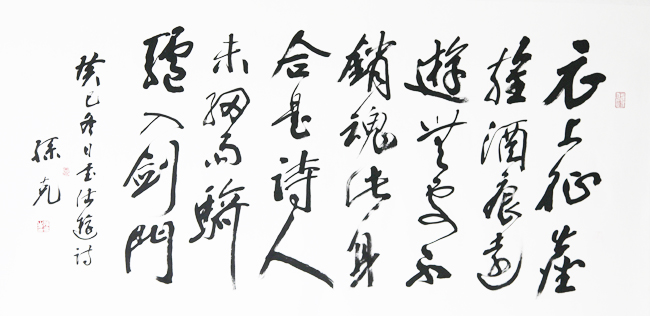 衣上征塵
雜酒痕遠
遊無處不
銷魂此身
合是詩人
未細雨騎
驢入劍門
癸巳冬日書陸遊詩
孫克